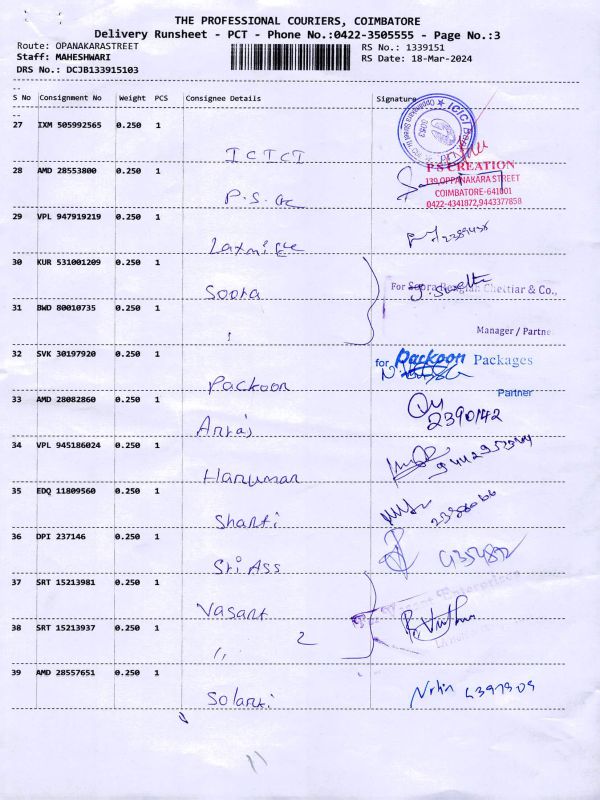 THE PROFESSIONAL COURIERS, COIMBATORE
Delivery Runsheet - PCT - Phone No.:0422-3505555 - Page No.:3
Route: OPANAKARASTREET RS No.: 1339151
Staff: MAHESHWARI RS Date: 18-Mar-2024
DRS No.: DCJB133915103
S No Consignment No Weight PCS Consignee Details Signature
27 IXM 505992565 0.250 1
ICICI
ICICI Bank
28 AMD 28553800 0.250 1
P.S. CREATION
139, OPPANAKARA STREET
COIMBATORE-641001
0422-4341872,9443377858
P.S.
29 VPL 947919219 0.250 1
30 KUR 531001209 0.250 1
Soora
For Chettiar & Co.,
31 BWD 80010735 0.250 1
Manager / Partne
32 SVK 30197920 0.250 1
for Packoon Packages
Packoon
Partner
33 AMD 28082860 0.250 1
2390142
34 VPL 945186024 0.250 1
Hanuman
35 EDQ 11809560 0.250 1
Shanti
36 DPI 237146 0.250 1
Sri Ass
37 SRT 15213981 0.250 1
Vasant
38 SRT 15213937 0.250 1
2
39 AMD 28557651 0.250 1
Solanki